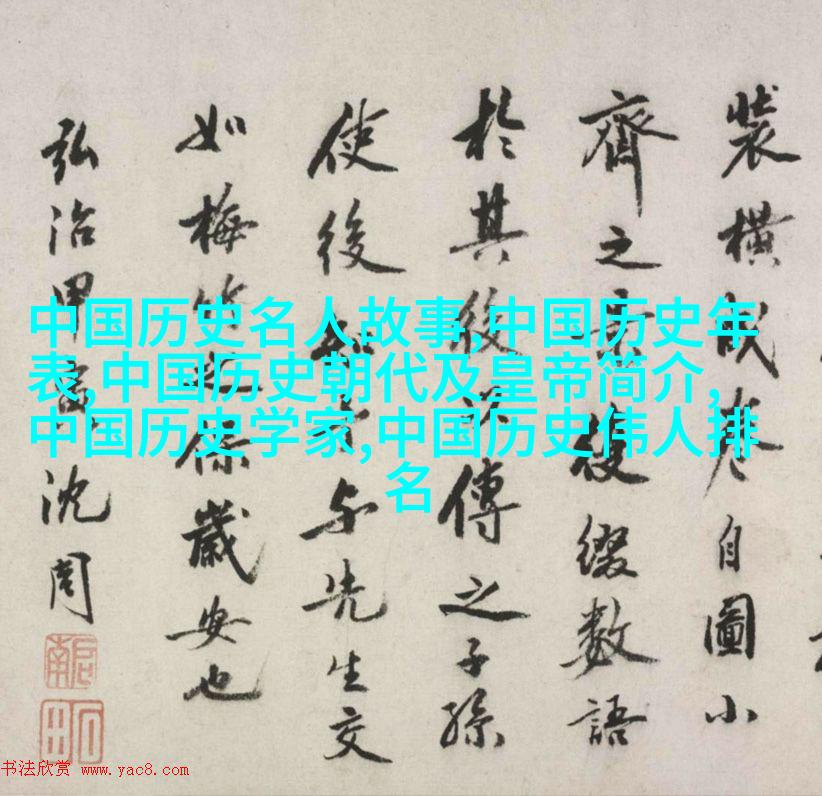 裝橫成卷自圖小
齊之後綴數語
於其後傳之子孫
使後知予与先生交
如梅竹保歲安也
弘治甲寅沈周
啟南
石田
中国历史名人故事,中国历史年
表,中国历史朝代及皇帝简介,
中国历史学家,中国历史伟人排
名
书法欣赏 www.yac8.com